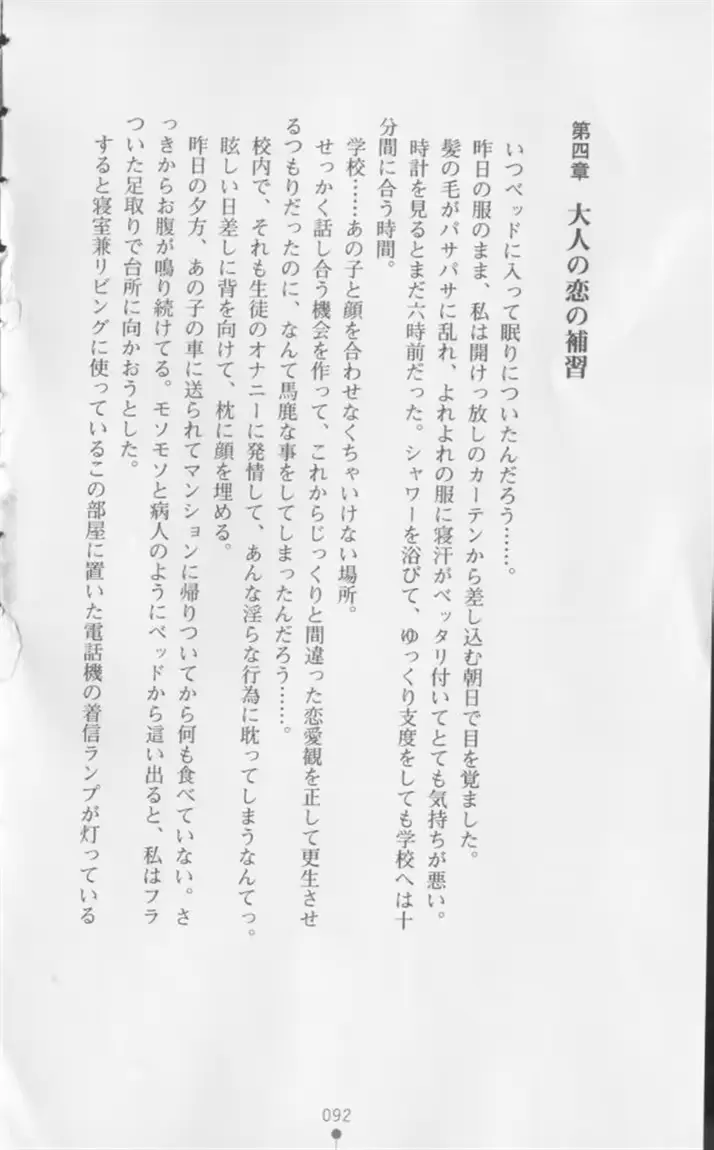 第四章　大人の恋の補習
いつベッドに入って眠りについたんだろう……。
昨日の服のまま、私は開けっ放しのカーテンから差し込む朝日で目を覚ました。
髪の毛がパサパサに乱れ、よれよれの服に寝汗がベッタリ付いてとても気持ちが悪い。
時計を見るとまだ六時前だった。シャワーを浴びて、ゆっくり支度をしても学校へは十
分間に合う時間。
学校……あの子と顔を合わせなくちゃいけない場所。
せっかく話し合う機会を作って、これからじっくりと間違った恋愛観を正して更生させ
るつもりだったのに、なんて馬鹿な事をしてしまったんだろう……。
校内で、それも生徒のオナニーに発情して、あんな淫らな行為に耽ってしまうなんてっ。
眩しい日差しに背を向けて、枕に顔を埋める。
昨日の夕方、あの子の車に送られてマンションに帰りついてから何も食べていない。さ
っきからお腹が鳴り続けてる。モソモソと病人のようにベッドから這い出ると、私はフラ
ついた足取りで台所に向かおうとした。
すると寝室兼リビングに使っているこの部屋に置いた電話機の着信ランプが灯っている
092